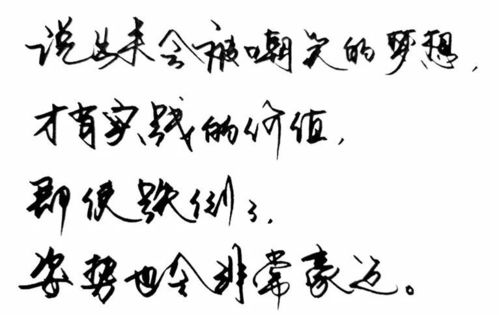 说出来会被嘲笑的梦想，
才有实践的价值，
即使跌倒了，
姿势也会非常豪迈。